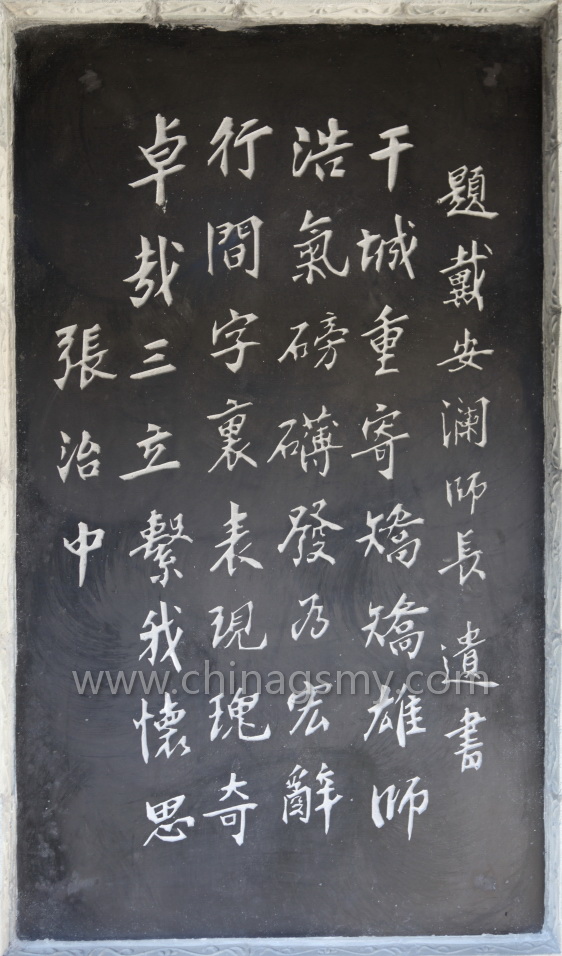 題戴安瀾師長遺書
干城重寄矯矯雄師
浩氣磅礴發為宏辭
行間字裏表現瑰奇
卓哉三立繫我懷思
張治中
www.chinagsmy.com